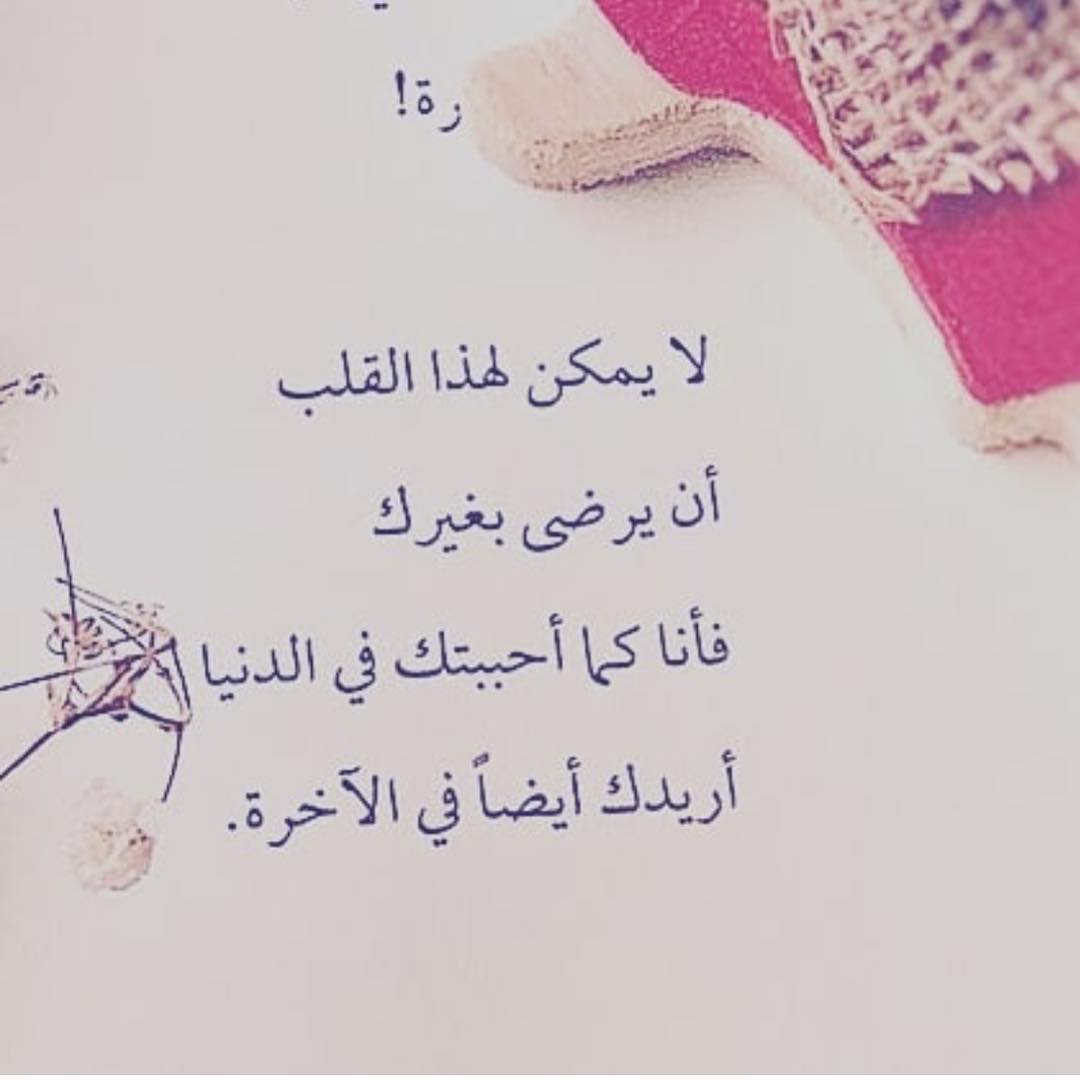 زة!
لا يمكن لهذا القلب
أن يرضى بغيرك
فأنا كما أحببتك في الدنيا
أريدك أيضاً في الآخرة.